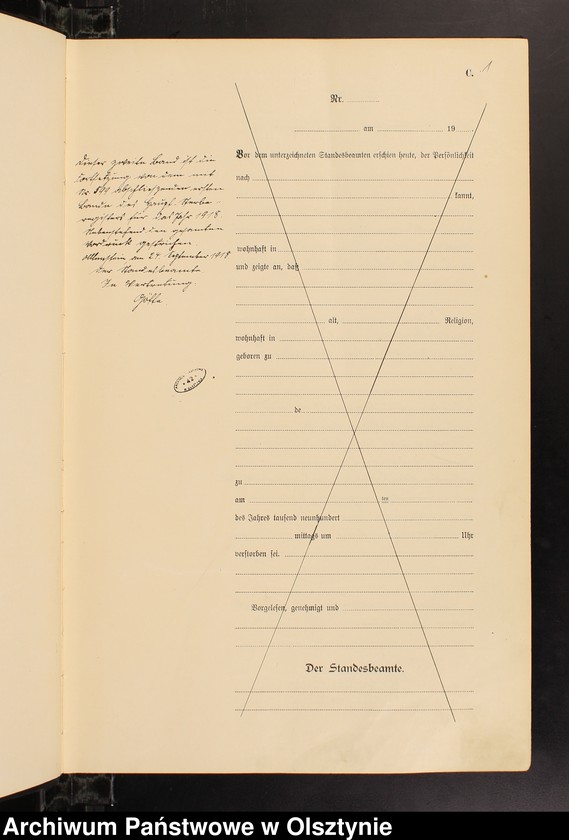 C. 1
Nr.
am 19
Vor dem unterzeichneten Standesbeamten erschien heute, der Persönlichkeit
nach
kannt,
wohnhaft in
und zeigte an, daß
alt, Religion,
wohnhaft in
geboren zu
de
zu
am ten
des Jahres tausend neunhundert
mittags um Uhr
verstorben sei.
Vorgelesen, genehmigt und
Der Standesbeamte.
Dieser zweite Band ist die
Fortsetzung von dem mit
Nr 599 abschließenden ersten
Bande des Haupt-Sterbe-
registers für das Jahr 1918
Nebenstehend den gesamten
Vordruck gestrichen
Allenstein am 24. September 1918
Der Standesbeamte
In Vertretung.
42
Archiwum Państwowe w Olsztynie